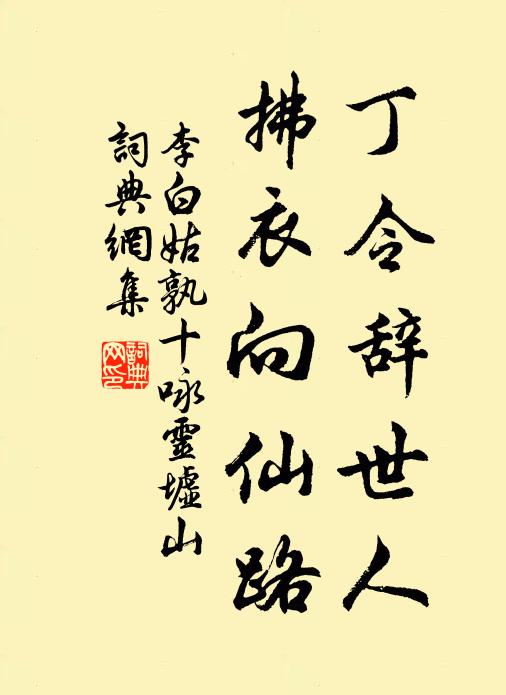 丁令辞世人
拂衣向仙路
李白姑孰十咏靈墟山
詞典網集
詞典
网印